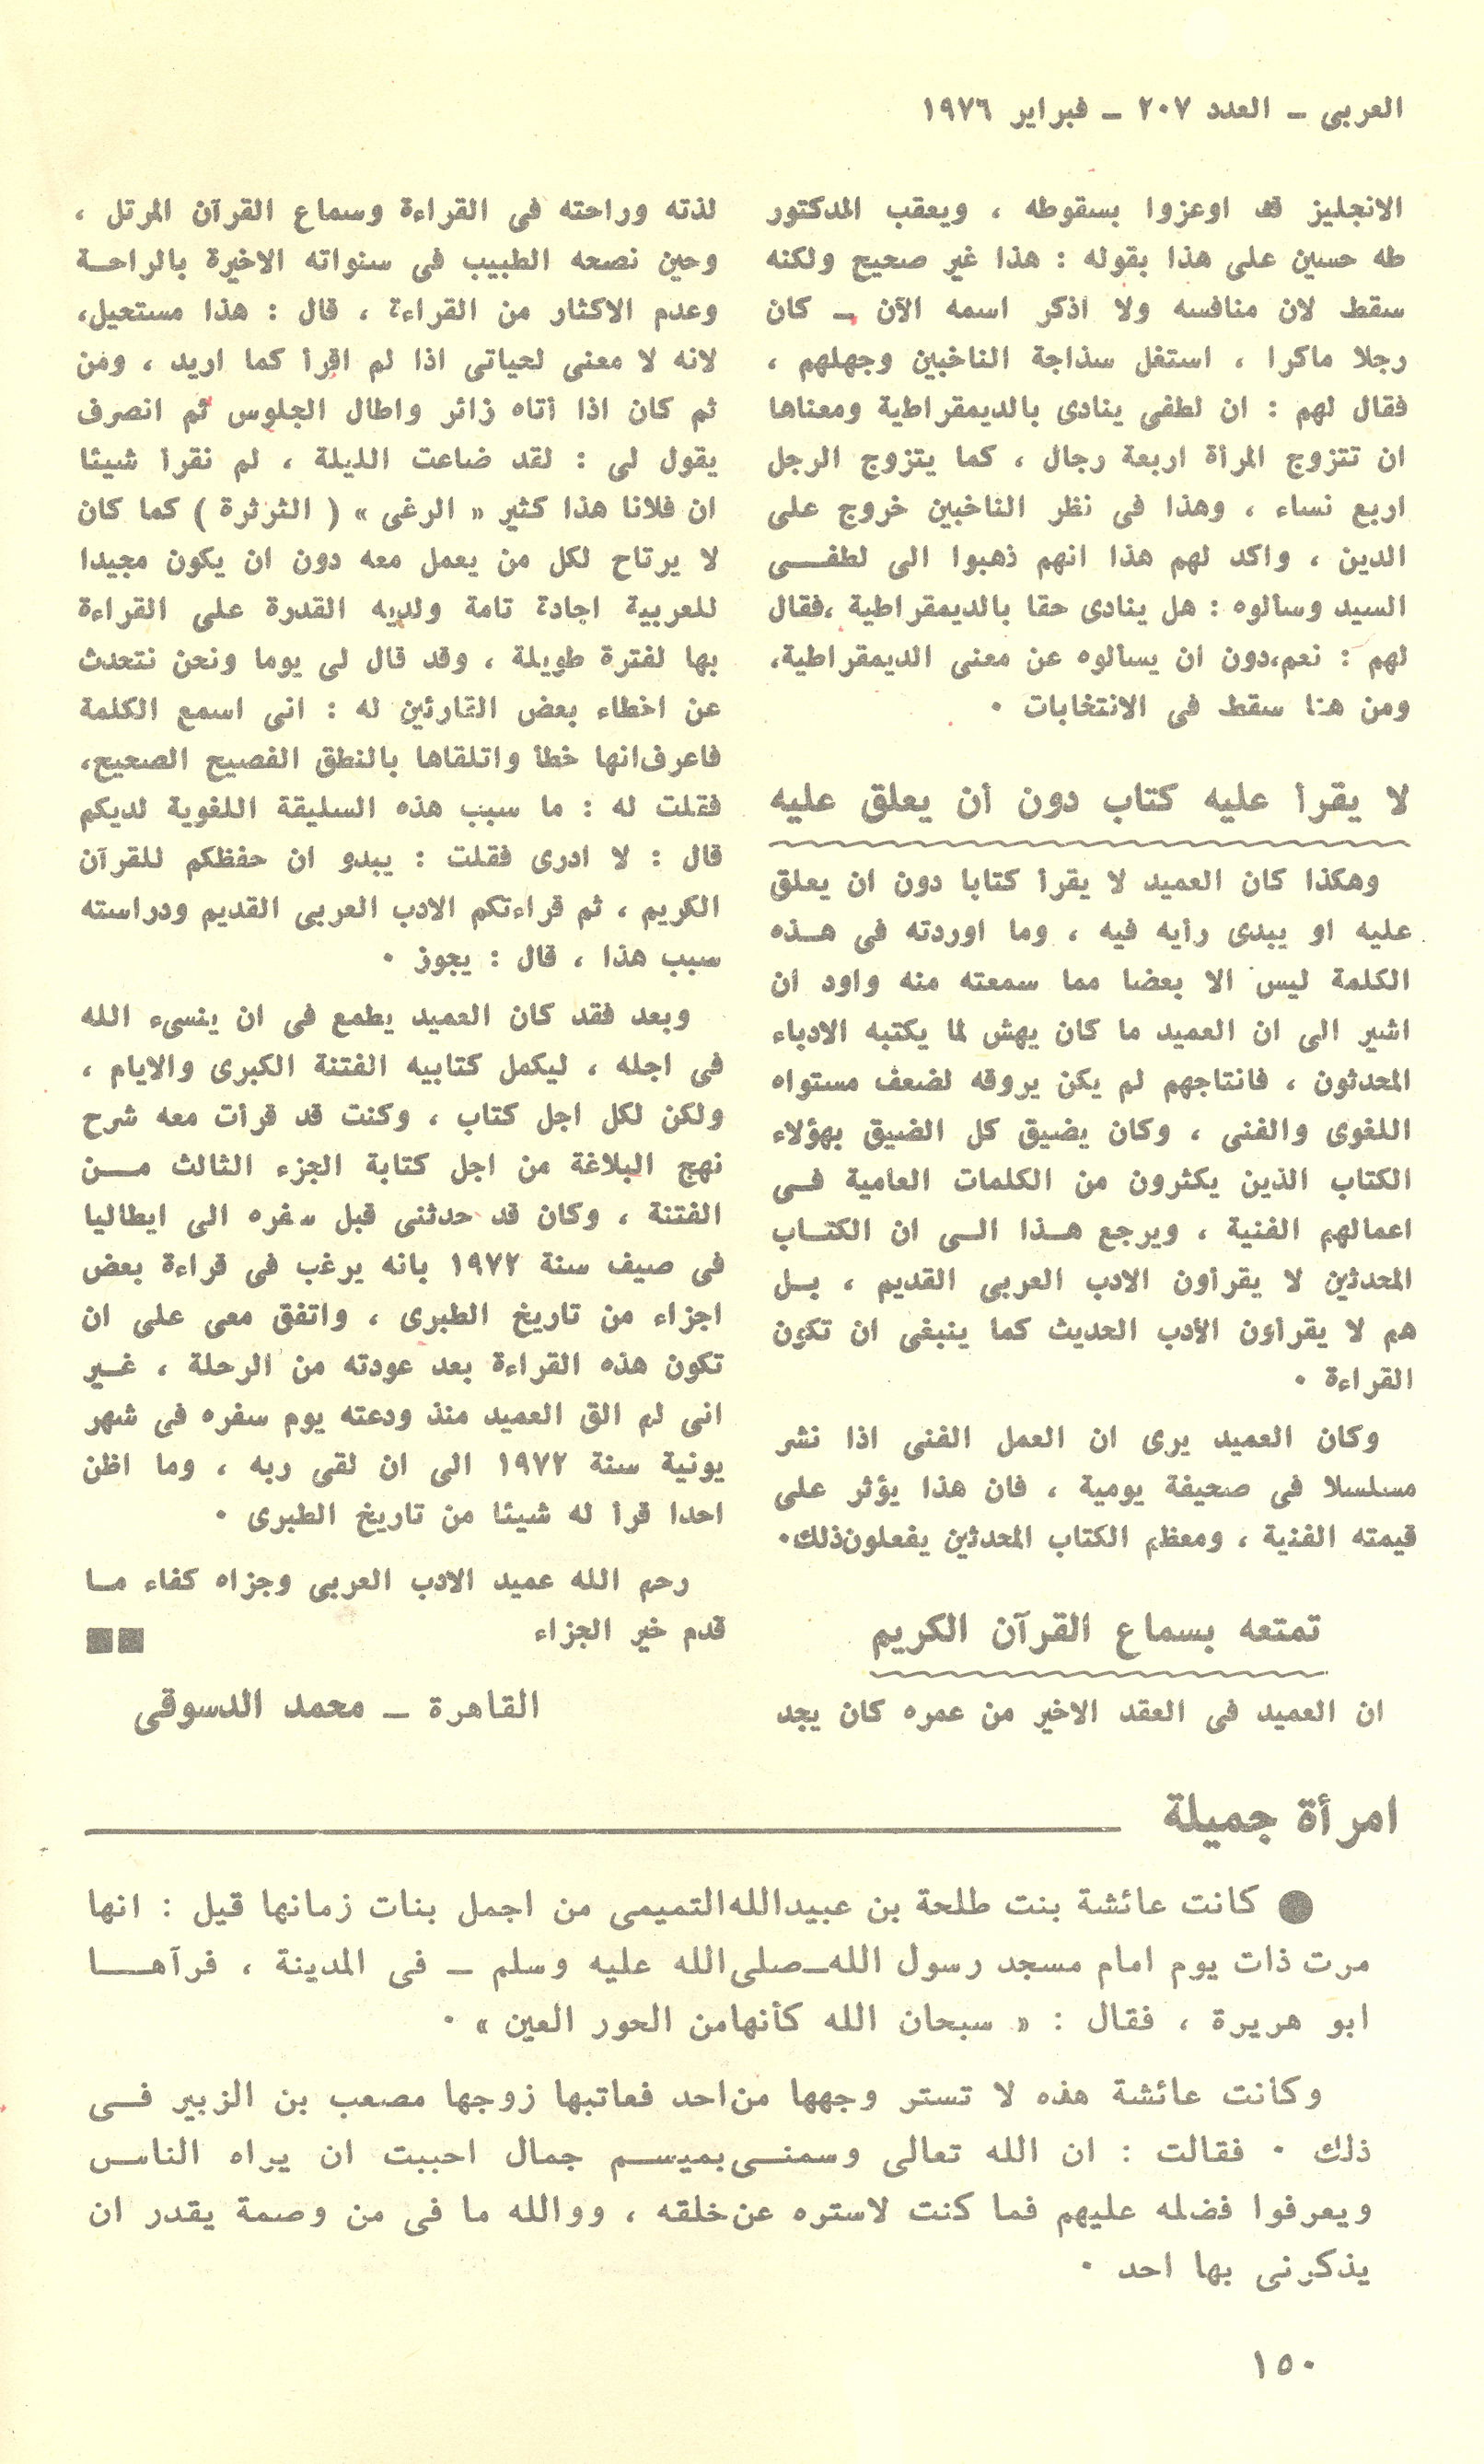 العربى ـ العدد ٢٠٧ ـ فبراير ١٩٧٦
الانجليز قد اوعزوا بسقوطه ، ويعقب الدكتور
طه حسين على هذا بقوله : هذا غير صحيح ولكنه
سقط لان منافسه ولا أذكر اسمه الآن ـ كان
رجلا ماكرا ، استغل سذاجة الناخبين وجهلهم ،
فقال لهم : ان لطفى ينادى بالديمقراطية ومعناها
ان تتزوج المرأة اربعة رجال ، كما يتزوج الرجل
اربع نساء ، وهذا فى نظر الناخبين خروج على
الدين ، واكد لهم هذا انهم ذهبوا الى لطفـــى
السيد وسألوه : هل ينادى حقا بالديمقراطية ،فقال
لهم : نعم،دون ان يسألوه عن معنى الديمقراطية،
ومن هنا سقط فى الانتخابات ٠
لا يقرأ عليه كتاب دون أن يعلق عليه
وهكذا كان العميد لا يقرأ كتابا دون ان يعلق
عليه او يبدى رأيه فيه ، وما اوردته فى هــذه
الكلمة ليس الا بعضا مما سمعته منه واود ان
اشير الى ان العميد ما كان يهش لما يكتبه الادباء
المحدثون ، فانتاجهم لم يكن يروقه لضعف مستواه
اللغوى والفنى ، وكان يضيق كل الضيق بهؤلاء
الكتاب الذين يكثرون من الكلمات العامية فــى
اعمالهم الفنية ، ويرجع هــذا الــى ان الكتــاب
المحدثين لا يقرأون الادب العربى القديم ، بــل
هم لا يقرأون الأدب الحديث كما ينبغى ان تكون
القراءة ٠
وكان العميد يرى ان العمل الفنى اذا نشر
مسلسلا فى صحيفة يومية ، فان هذا يؤثر على
قيمته الفنية ، ومعظم الكتاب المحدثين يفعلون‌ذلك٠
تمتعه بسماع القرآن الكريم
ان العميد فى العقد الاخير من عمره كان يجد
لذته وراحته فى القراءة وسماع القرآن المرتل ،
وحين نصحه الطبيب فى سنواته الاخيرة بالراحــة
وعدم الاكثار من القراءة ، قال : هذا مستحيل،
لانه لا معنى لحياتى اذا لم اقرأ كما اريد ، ومن
ثم كان اذا أتاه زائر واطال الجلوس ثم انصرف
يقول لى : لقد ضاعت الليلة ، لم نقرأ شيئا
ان فلانا هذا كثير « الرغى » ( الثرثرة ) كما كان
لا يرتاح لكل من يعمل معه دون ان يكون مجيدا
للعربية اجادة تامة ولديه القدرة على القراءة
بها لفترة طويلة ، وقد قال لى يوما ونحن نتحدث
عن اخطاء بعض القارئين له : انى اسمع الكلمة
فاعرف‌انها خطأ واتلقاها بالنطق الفصيح الصحيح،
فقلت له : ما سبب هذه السليقة اللغوية لديكم
قال : لا ادرى فقلت : يبدو ان حفظكم للقرآن
الكريم ، ثم قراءتكم الادب العربى القديم ودراسته
سبب هذا ، قال : يجوز ٠
وبعد فقد كان العميد يطمع فى ان ينسىء الله
فى اجله ، ليكمل كتابيه الفتنة الكبرى والايام ،
ولكن لكل اجل كتاب ، وكنت قد قرأت معه شرح
نهج البلاغة من اجل كتابة الجزء الثالث مــن
الفتنة ، وكان قد حدثنى قبل سفره الى ايطاليا
فى صيف سنة ١٩٧٢ بانه يرغب فى قراءة بعض
اجزاء من تاريخ الطبرى ، واتفق معى على ان
تكون هذه القراءة بعد عودته من الرحلة ، غــير
انى لم الق العميد منذ ودعته يوم سفره فى شهر
يونية سنة ١٩٧٢ الى ان لقى ربه ، وما اظن
احدا قرأ له شيئا من تاريخ الطبرى ٠
رحم الله عميد الادب العربى وجزاه كفاء مــا
قدم خير الجزاء ■■
القاهرة ـ محمد الدسوقى
امرأة جميلة
● كانت عائشة بنت طلحة بن عبيدالله‌التميمى من اجمل بنات زمانها قيل : انها
مرت ذات يوم امام مسجد رسول الله‌ـ‌صلى‌الله عليه وسلم ـ فى المدينة ، فرآهــا
ابو هريرة ، فقال : « سبحان الله كأنهامن الحور العين » ٠
وكانت عائشة هذه لا تستر وجهها من‌احد فعاتبها زوجها مصعب بن الزبير فــى
ذلك ٠ فقالت : ان الله تعالى وسمنــى‌بميســم جمال احببت ان يراه الناس
ويعرفوا فضله عليهم فما كنت لاستره عن‌خلقه ، ووالله ما فى من وصمة يقدر ان
يذكرنى بها احد ٠
١٥٠